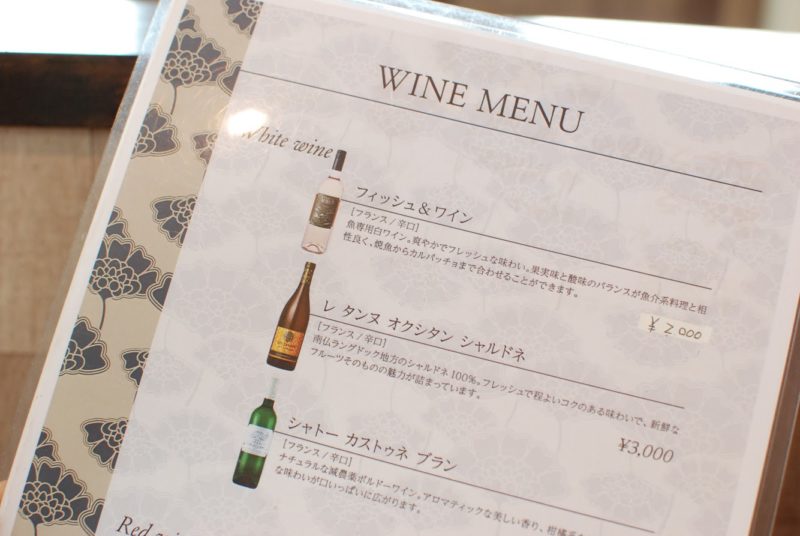 WINE MENU
White wine
フィッシュ＆ワイン
[フランス / 辛口]
魚専用白ワイン。爽やかでフレッシュな味わい。果実味と酸味のバランスが魚介系料理と相
性良く、焼魚からカルパッチョまで合わせることができます。
¥2,000
レ タンヌ オクシタン シャルドネ
[フランス / 辛口]
南仏ラングドック地方のシャルドネ 100%。フレッシュで程よいコクのある味わいで、新鮮な
フルーツそのものの魅力が詰まっています。
¥3,000
シャトー カストゥネ ブラン
[フランス / 辛口]
ナチュラルな減農薬ボルドーワイン。アロマティックな美しい香り、柑橘系
な味わいが口いっぱいに広がります。
Red wine